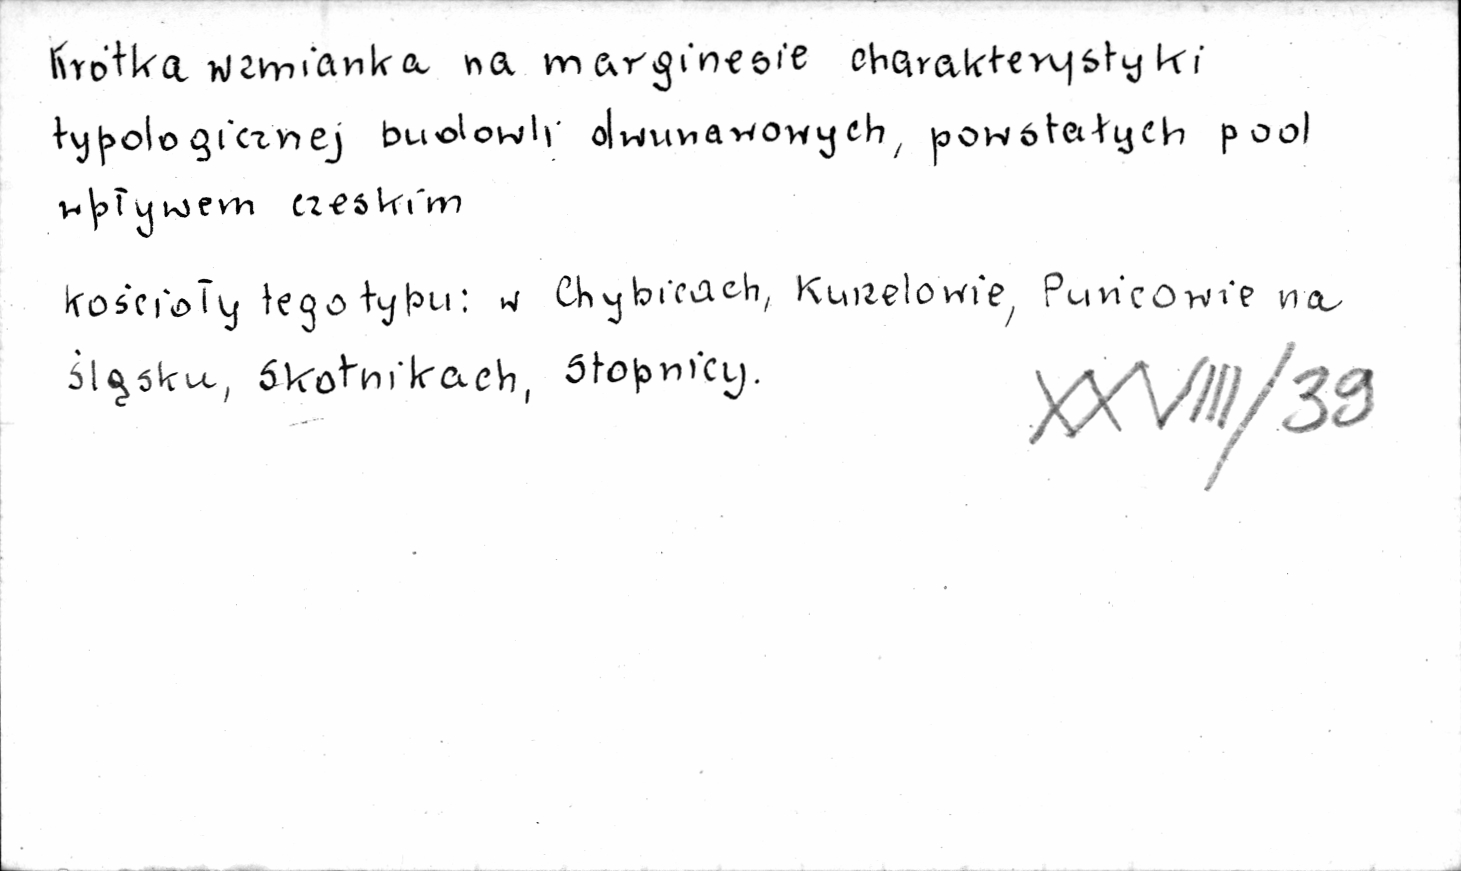 Krótka wzmianka na marginesie charakterystyki
typologicznej budowli dwunawowych, powstałych pod
wpływem czeskim
kościoły tego typu: w Chybicach, Kurzelowie, Puńcowie na
Śląsku, Skotnikach, Stopnicy.
XXVIII/39